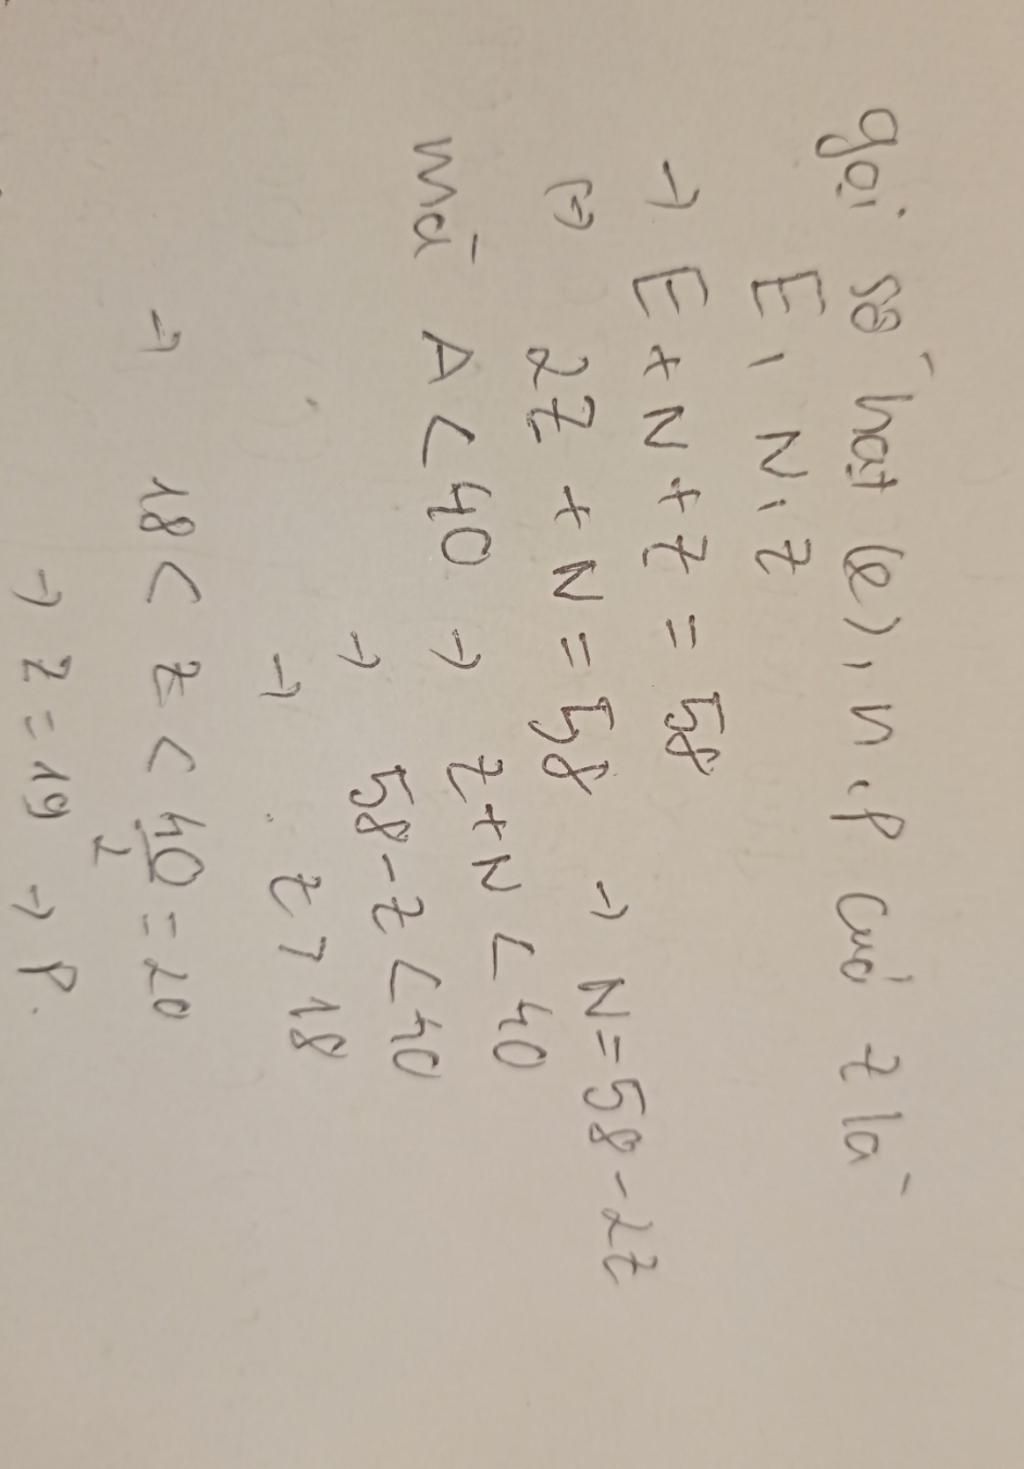 gọi số hạt (e), n, p của z là
E, N, Z
→ E + N + Z = 58
(=) 2Z + N = 58 → N = 58 - 2Z
mà A < 40 → Z + N < 40
→ 58 - Z < 40
→ Z > 18
→ 18 < Z < 40/2 = 20
→ Z = 19 → P.